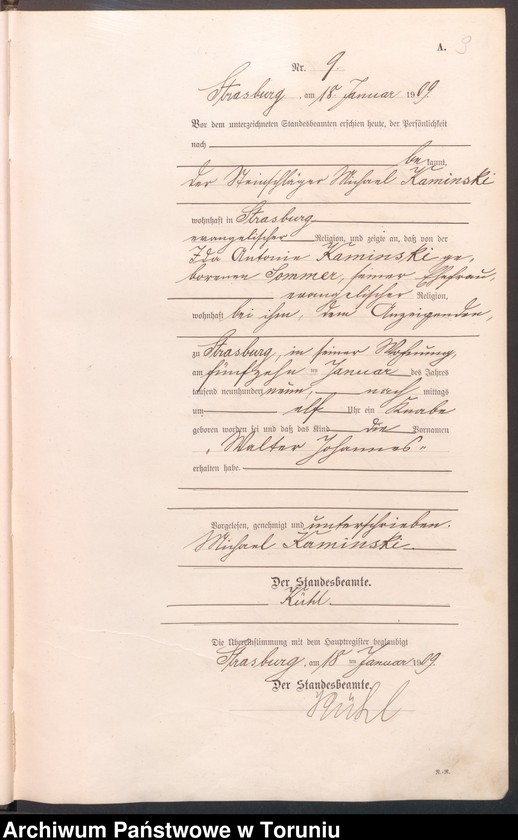 A. 9
Nr. 9
Strasburg, am 18. Januar 1909
Vor dem unterzeichneten Standesbeamten erschien heute, der Persönlichkeit
nach
be kannt,
der Steinschläger Michael Kaminski
wohnhaft in Strasburg
evangelischer Religion, und zeigte an, daß von der
Ida Antonie Kaminski ge-
borenen Sommer, seiner Ehefrau,
evangelischer Religion,
wohnhaft bei ihm, dem Anzeigenden,
zu Strasburg, in seiner Wohnung,
am fünfzehn ten Januar des Jahres
tausend neunhundert neun, nach mittags
um elf Uhr ein Knabe
geboren worden sei und daß das Kind die Vornamen
„Walter Johannes“
erhalten habe.
Vorgelesen, genehmigt und unterschrieben.
Michael Kaminski.
Der Standesbeamte.
Kühl.
Die Übereinstimmung mit dem Hauptregister beglaubigt
Strasburg, am 18 ten Januar 1909.
Der Standesbeamte.
Kühl
Archiwum Państwowe w Toruniu